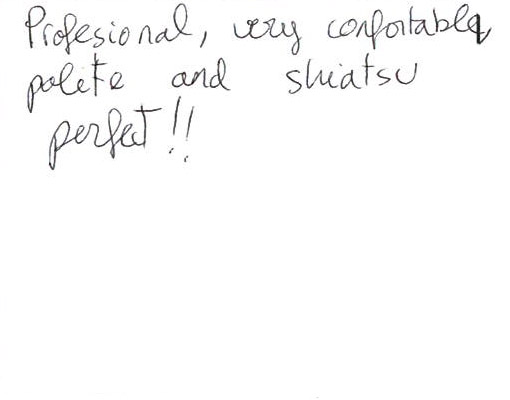 Profesional, very confortable,
polite and shiatsu
perfect!!